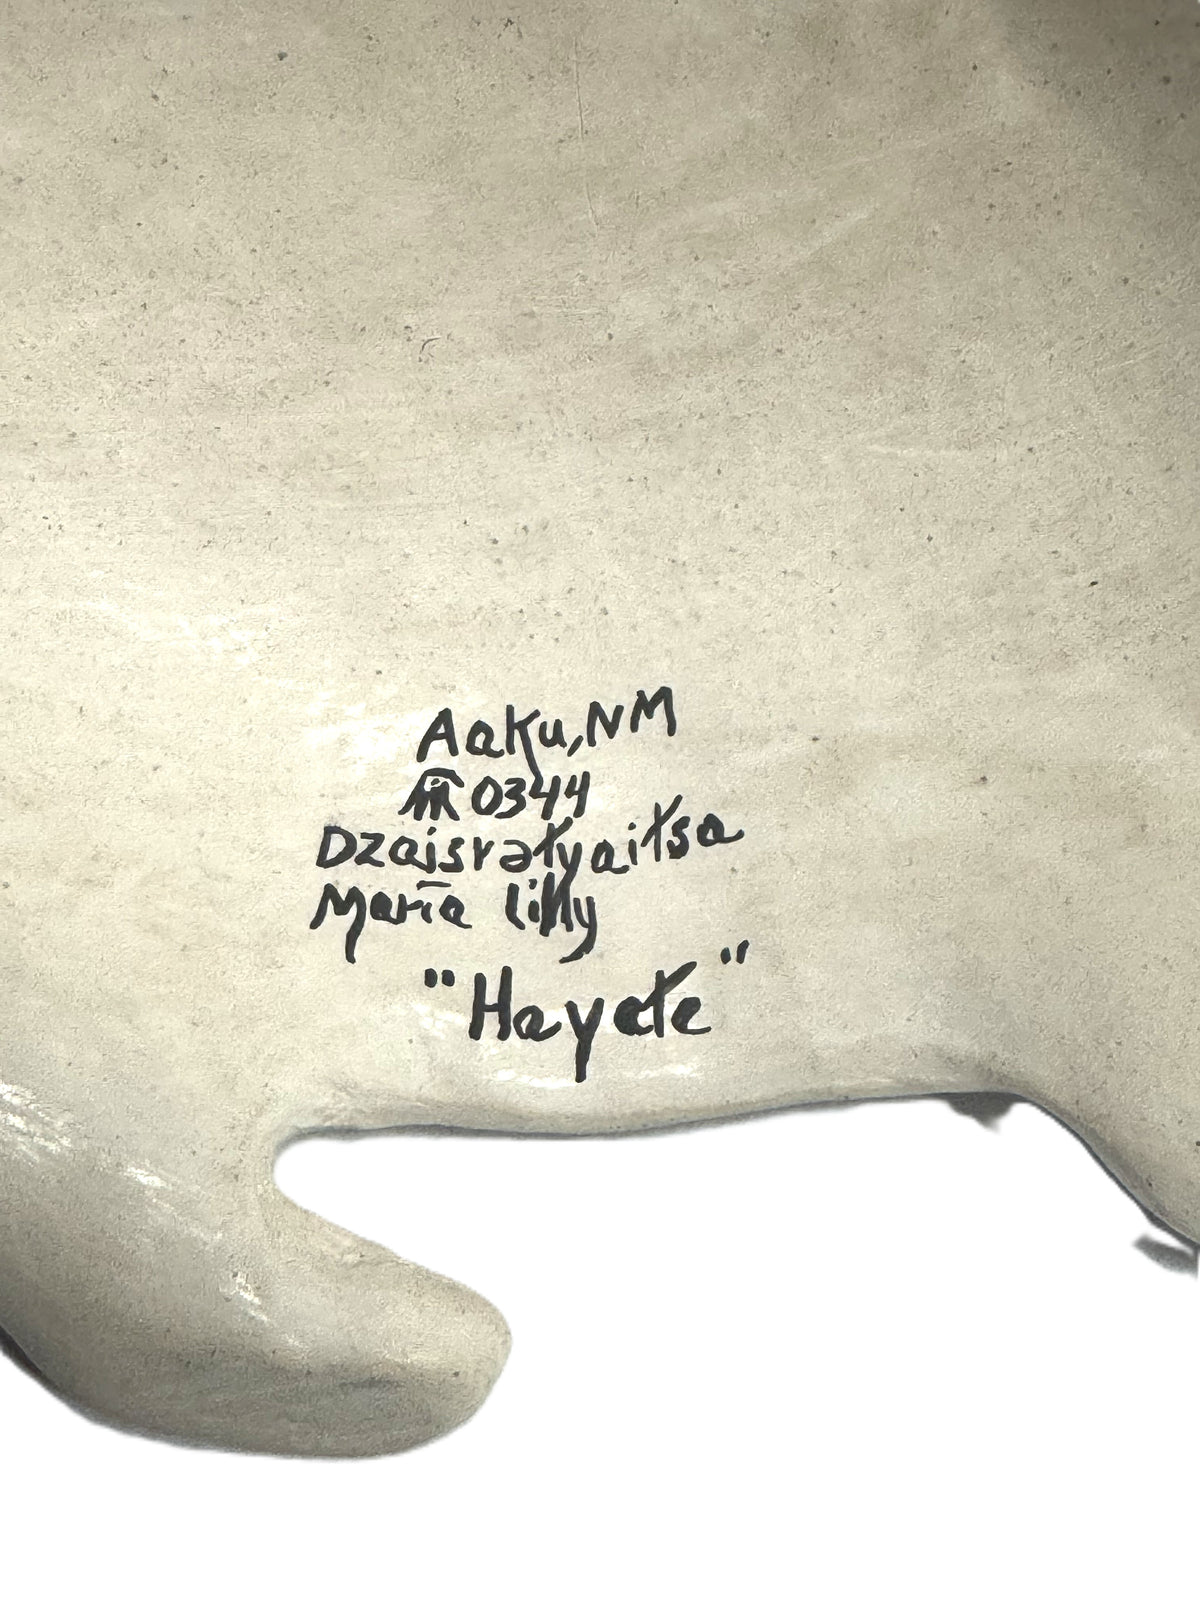 Aaku, NM
0344
Dzaisratyaitsa
Maria Lilly
"Hayate"